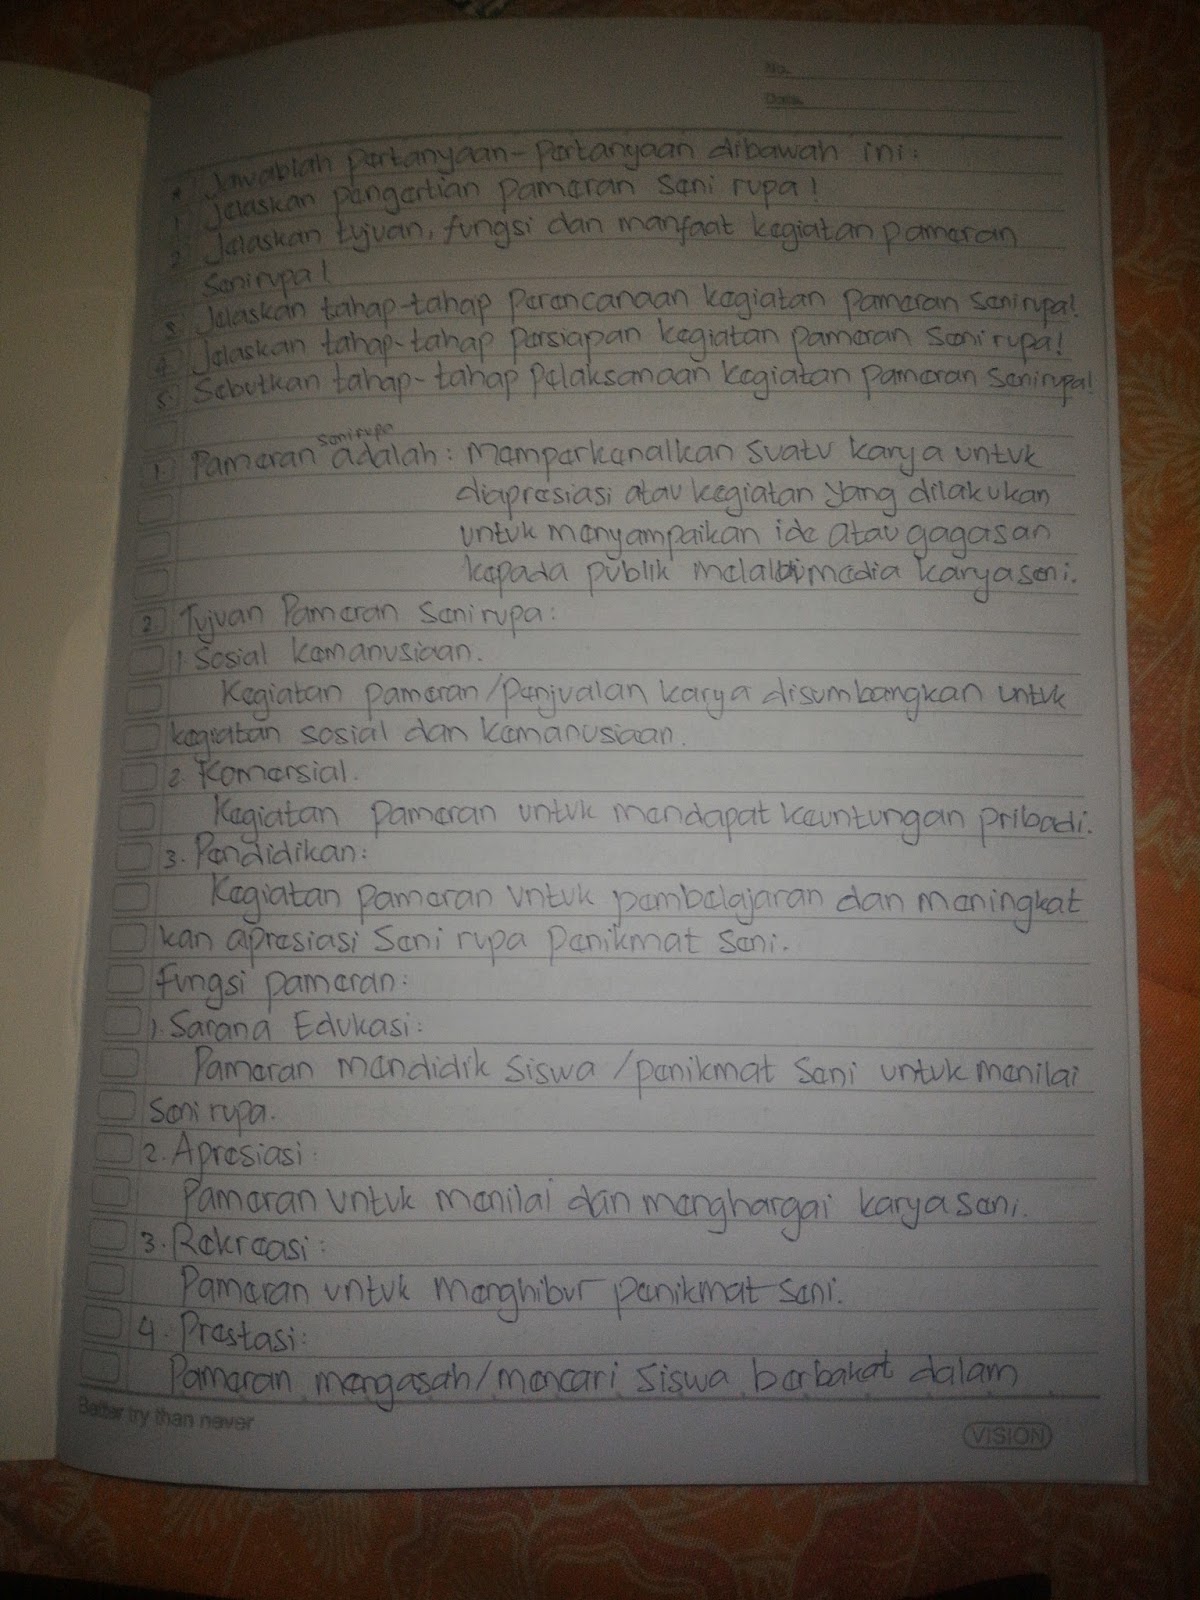 No.
Date.
* Jawablah pertanyaan-pertanyaan dibawah ini:
1. Jelaskan pengertian pameran seni rupa!
2. Jelaskan tujuan, fungsi dan manfaat kegiatan pameran
seni rupa!
3. Jelaskan tahap-tahap perencanaan kegiatan pameran seni rupa!
4. Jelaskan tahap-tahap persiapan kegiatan pameran seni rupa!
5. Sebutkan tahap-tahap pelaksanaan kegiatan pameran seni rupa!
1. Pameran seni rupa adalah: memperkenalkan suatu karya untuk
diapresiasi atau kegiatan yang dilakukan
untuk menyampaikan ide atau gagasan
kepada publik melalui media karya seni.
2. Tujuan Pameran seni rupa:
1. Sosial kemanusiaan.
Kegiatan pameran/penjualan karya disumbangkan untuk
kegiatan sosial dan kemanusiaan.
2. Komersial.
Kegiatan pameran untuk mendapat keuntungan pribadi.
3. Pendidikan:
Kegiatan pameran untuk pembelajaran dan meningkat
kan apresiasi seni rupa penikmat seni.
Fungsi pameran:
1. Sarana Edukasi:
Pameran mendidik siswa/penikmat seni untuk menilai
seni rupa.
2. Apresiasi:
Pameran untuk menilai dan menghargai karya seni.
3. Rekreasi:
Pameran untuk menghibur penikmat seni.
4. Prestasi:
Pameran mengasah/mencari siswa berbakat dalam
Better try than never
VISION